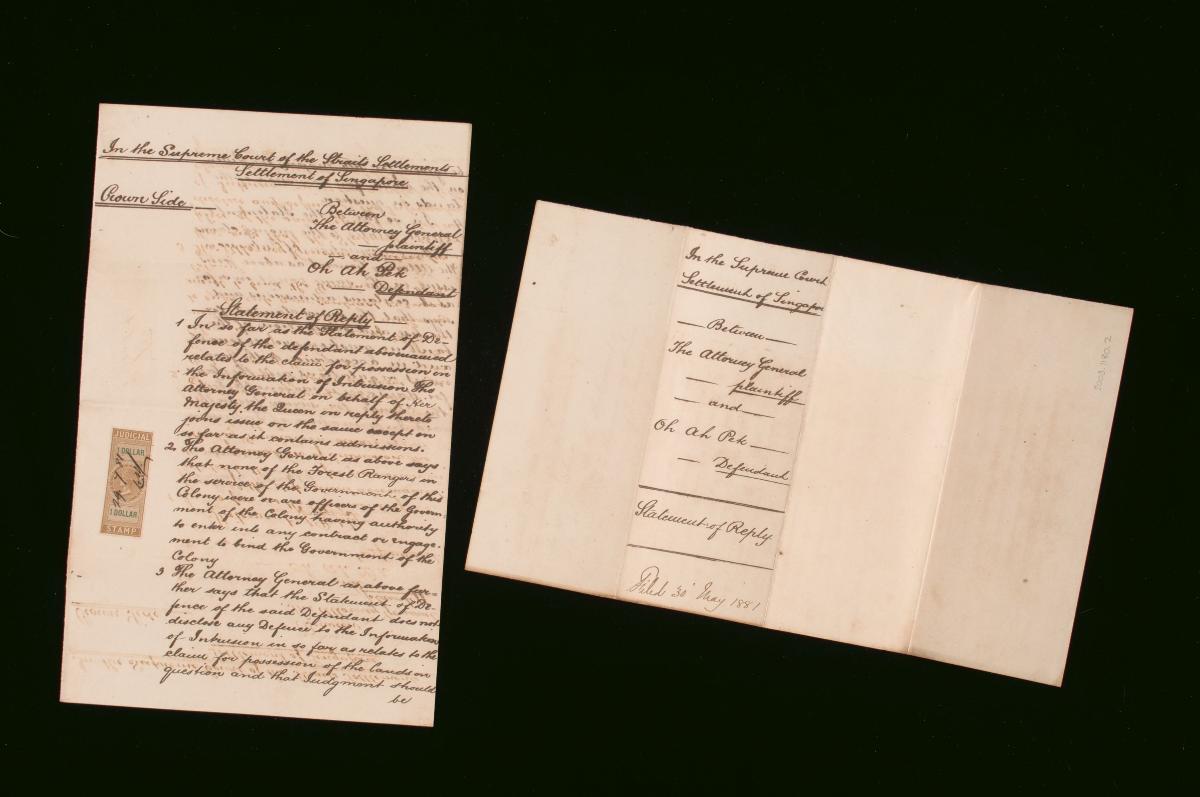 In the Supreme Court of the Straits Settlements.
Settlement of Singapore
Crown Side
Between
The Attorney General
plaintiff
and
Oh Ah Pek
Defendant
Statement of Reply
1 In so far as the Statement of De-
fence of the defendant abovenamed
relates to the claim for possession in
the Information of Intrusion The
Attorney General on behalf of Her
Majesty the Queen in reply thereto
joins issue on the same except in
so far as it contains admissions.
2. The Attorney General as above says
that none of the Forest Rangers in
the service of the Government of this
Colony were or are officers of the Govern-
ment of the Colony having authority
to enter into any contract or engage-
ment to bind the Government of the
Colony
3 The Attorney General as above fur-
ther says that the Statement of De-
fence of the said Defendant does not
disclose any Defence to the Information
of Intrusion in so far as relates to the
claim for possession of the lands in
question and that Judgment should
be
JUDICIAL
1 DOLLAR
1 DOLLAR
STAMP
In the Supreme Court
Settlement of Singapor
Between
The Attorney General
plaintiff
and
Oh Ah Pek
Defendant
Statement of Reply
Filed 30 May 1881
2003.1180.2